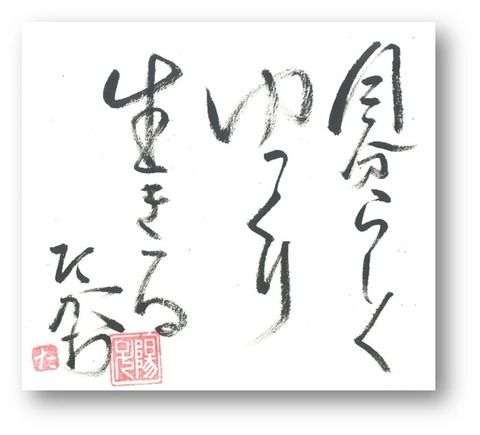 自分らしく
ゆっくり
生きる
たかお
た